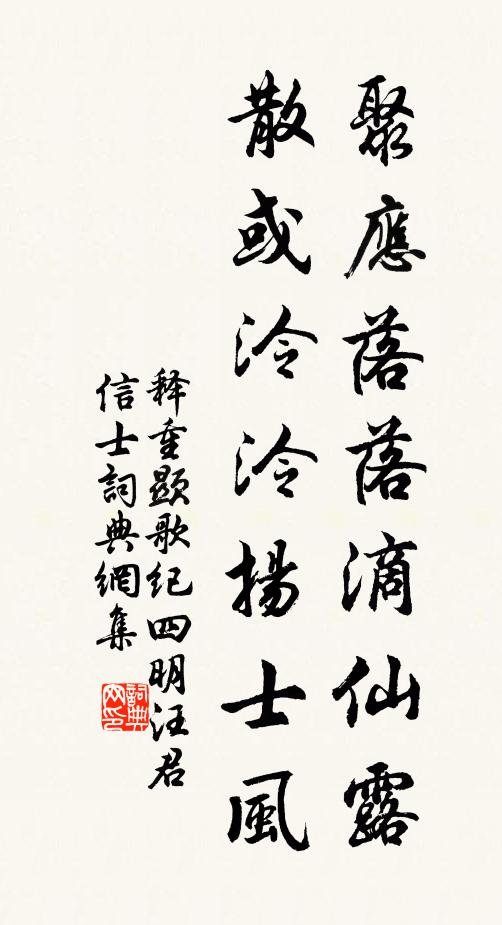 聚應落落滴仙露
散或泠泠揚士風
释重显歌纪四明汪君
信士詞典網集
詞典网印